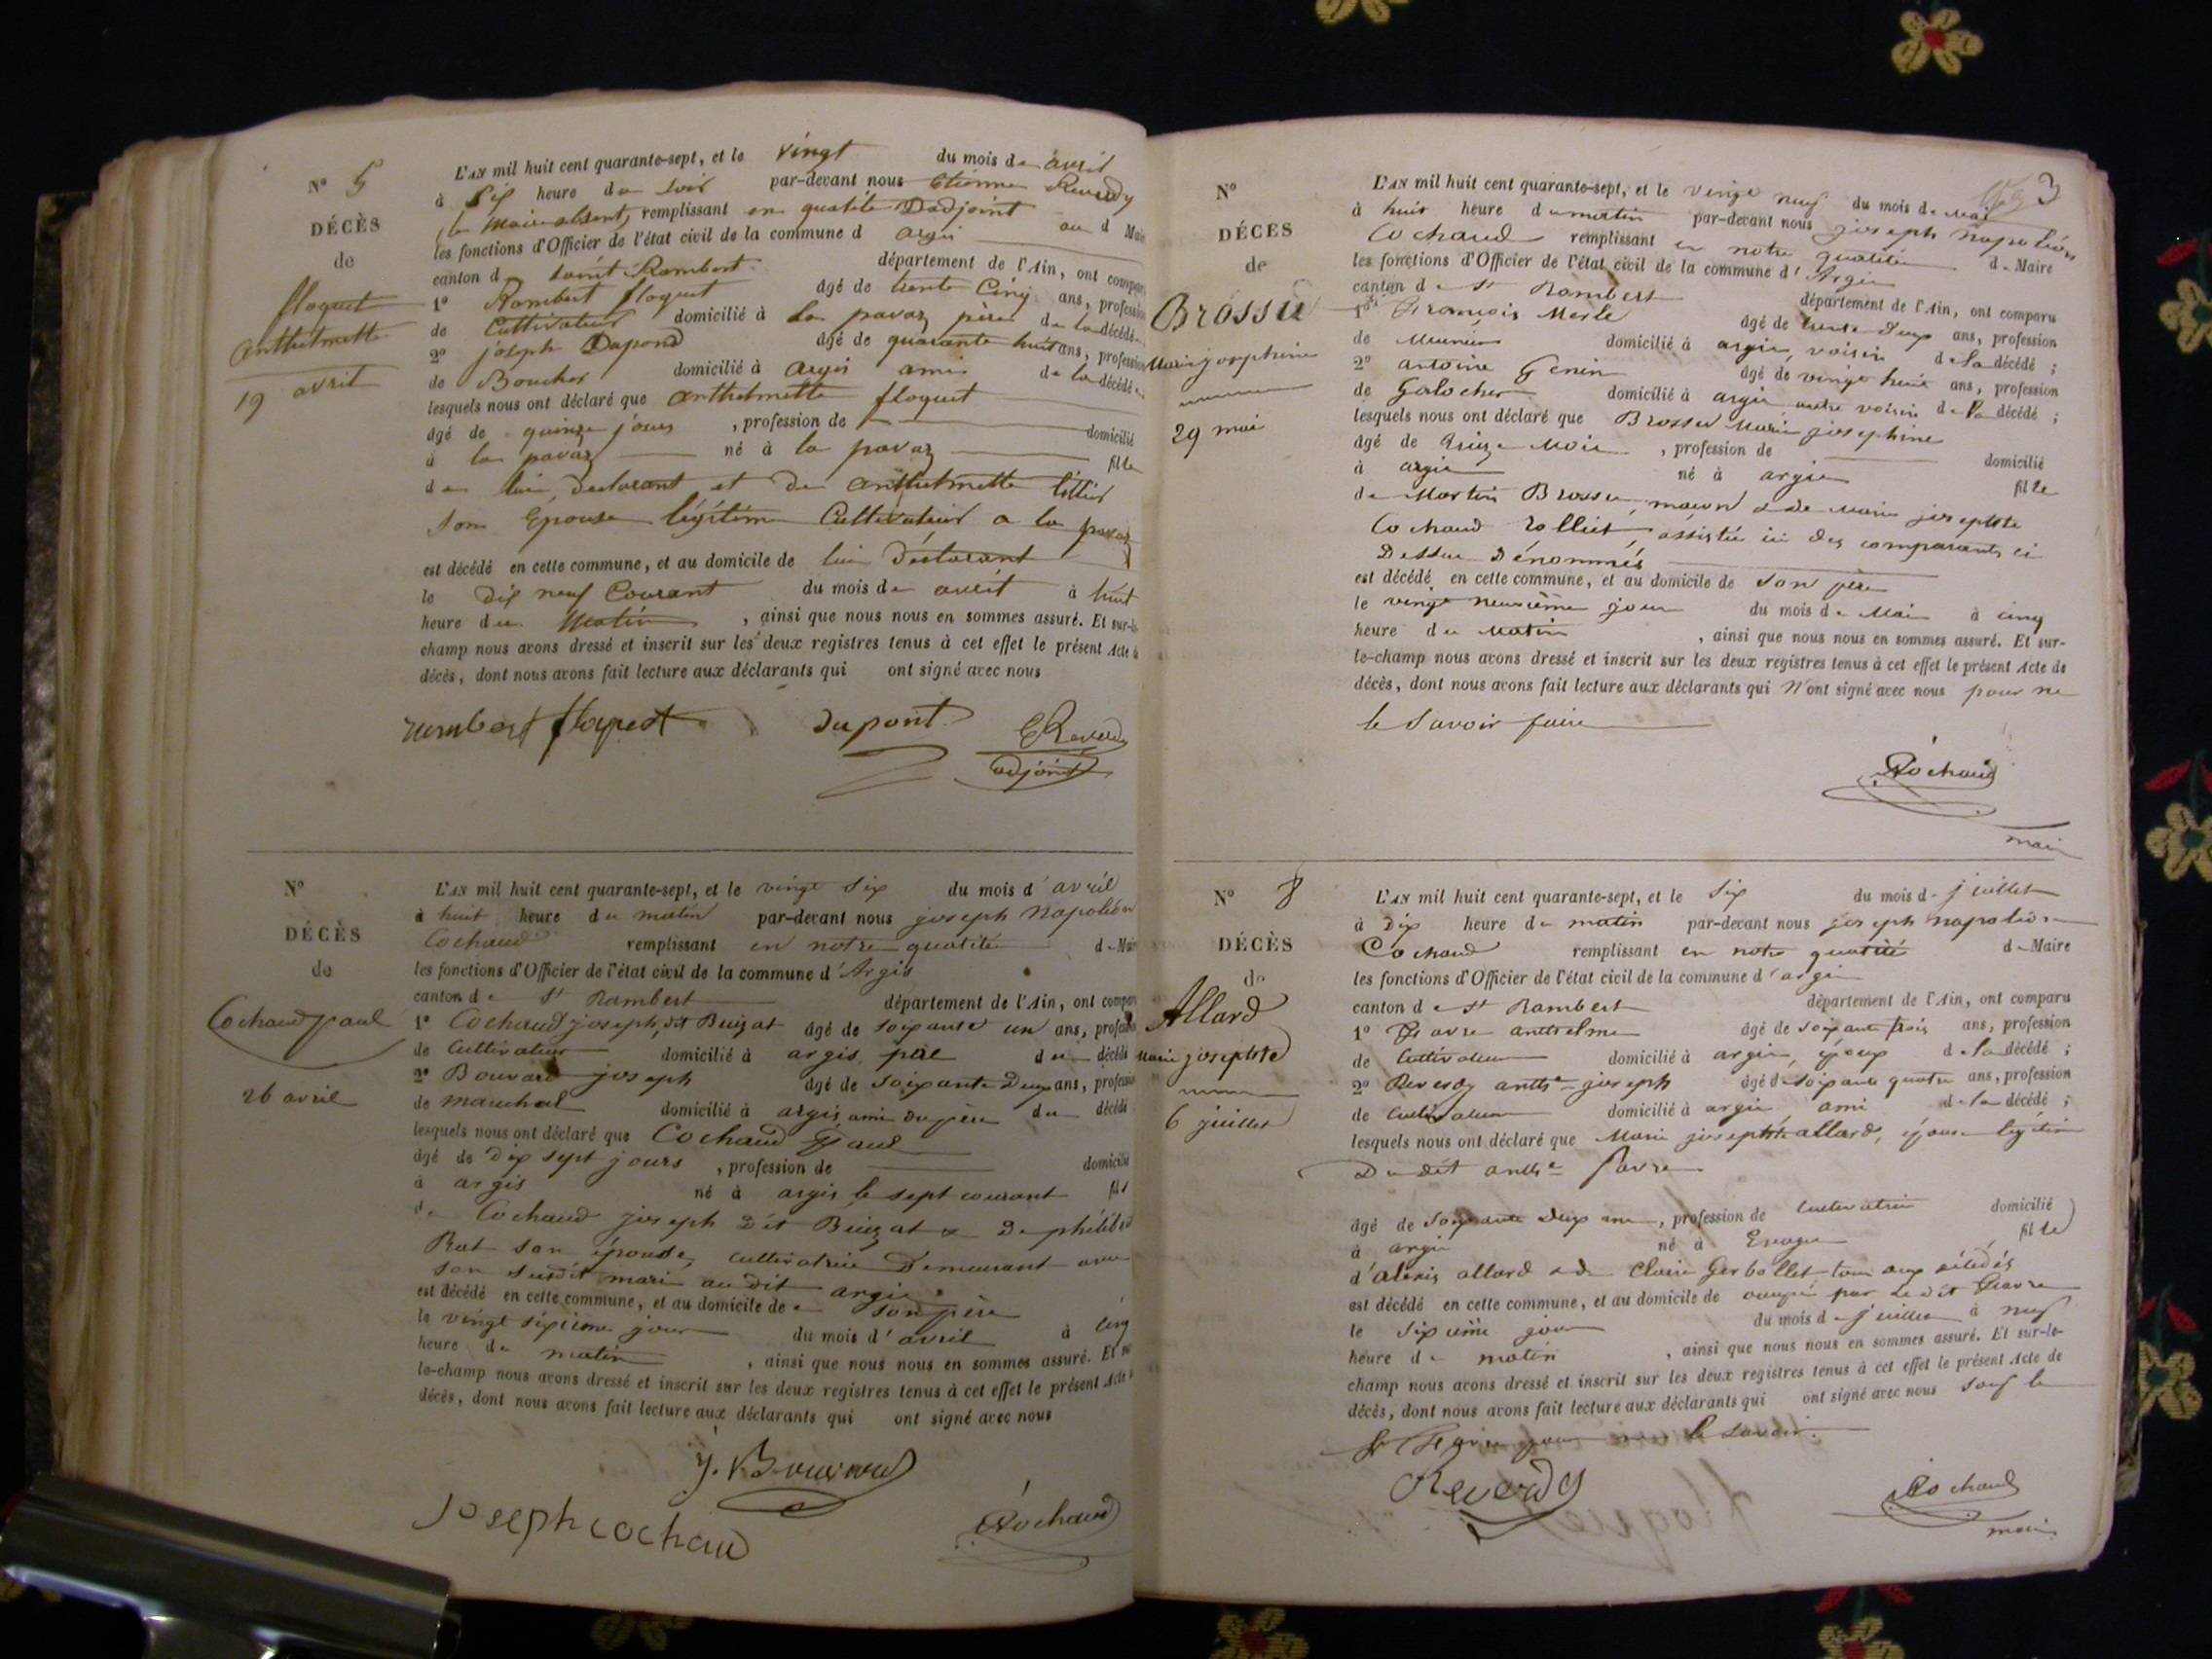 N° 5
DÉCÈS
de
floquet
anthelmette
19 avril
L'AN mil huit cent quarante-sept, et le vingt du mois de avril
à Six heure du soir par-devant nous Etienne Reverdy
le Maire absent, remplissant en qualité Dadjoint au d Maire
les fonctions d'Officier de l'état civil de la commune d argis
canton d saint Rambert département de l'Ain, ont comparu
1° Rambert floquet âgé de trente Cinq ans, profession
de Cultivateur domicilié à la pavaz père de la décédée
2° joseph Dupond âgé de quarante huit ans, profession
de Boucher domicilié à argis ami de la décédée
lesquels nous ont déclaré que anthelmette floquet
âgé de quinze jours , profession de domicilié
à la pavaz né à la pavaz fille
de lui declarant et de anthelmette
son Epouse légitime Cultivateur a la pavaz
est décédé en cette commune, et au domicile de lui déclarant
le dix neuf Courant du mois de avril à huit
heure du Matin , ainsi que nous nous en sommes assuré. Et sur-le-
champ nous avons dressé et inscrit sur les deux registres tenus à cet effet le présent Acte de
décès, dont nous avons fait lecture aux déclarants qui ont signé avec nous
rambert floquet dupont E Reverdy
adjoint
N°
DÉCÈS
de
Cochaud paul
26 avril
L'AN mil huit cent quarante-sept, et le vingt Six du mois d'avril
à huit heure du matin par-devant nous joseph napoléon
Cochaud remplissant en notre qualité de Maire
les fonctions d'Officier de l'état civil de la commune d'Argis
canton de St Rambert département de l'Ain, ont comparu
1° Cochaud joseph, dit Buizat âgé de soixante un ans, profession
de Cultivateur domicilié à argis, père du décédé
2° Bouvard joseph âgé de soixante Deux ans, profession
de marechal domicilié à argis, ami du père du décédé
lesquels nous ont déclaré que Cochaud Paul
âgé de Dix sept jours , profession de domicilié
à argis né à argis le sept courant fils
de Cochaud joseph Dit Buizat & De
Rat son épouse, cultivatrice Demeurant avec
son susdit mari au dit argis
est décédé en cette commune, et au domicile de son père
le vingt sixième jour du mois d'avril à cinq
heure du matin , ainsi que nous nous en sommes assuré. Et sur-
le-champ nous avons dressé et inscrit sur les deux registres tenus à cet effet le présent Acte de
décès, dont nous avons fait lecture aux déclarants qui ont signé avec nous
j. Bouvard
Joseph cochaud Cochaud
3
N°
DÉCÈS
de
Brossu
Marie josephine
29 mai
L'AN mil huit cent quarante-sept, et le vingt neuf du mois de Mai
à huit heure du matin par-devant nous joseph napoléon
Cochaud remplissant en notre qualité de Maire
les fonctions d'Officier de l'état civil de la commune d'Argis
canton de St Rambert département de l'Ain, ont comparu
1° François Merle âgé de trente Deux ans, profession
de Meunier domicilié à argis, voisin de la décédé ;
2° antoine Genin âgé de vingt huit ans, profession
de Galocher domicilié à argis autre voisin de la décédé ;
lesquels nous ont déclaré que Brossu Marie josephine
âgé de Mois , profession de domicilié
à argis né à argis fille
de Martin Brossu, maçon & de Marie josephte
Cochaud Rolliet, assistée ici des comparants ci
Dessus Dénommés
est décédé en cette commune, et au domicile de son père
le vingt neuvième jour du mois de Mai à cinq
heure du Matin , ainsi que nous nous en sommes assuré. Et sur-
le-champ nous avons dressé et inscrit sur les deux registres tenus à cet effet le présent Acte de
décès, dont nous avons fait lecture aux déclarants qui N'ont signé avec nous pour ne
le Savoir faire
Cochaud
maire
N° 8
DÉCÈS
de
Allard
Marie josephte
6 juillet
L'AN mil huit cent quarante-sept, et le Six du mois de juillet
à Dix heure du matin par-devant nous joseph napoléon
Cochaud remplissant en notre qualité de Maire
les fonctions d'Officier de l'état civil de la commune d'argis
canton de St Rambert département de l'Ain, ont comparu
1° Favre anthelme âgé de soixante trois ans, profession
de Cultivateur domicilié à argis, époux de la décédé ;
2° Reverdy anthe joseph âgé de soixante quatre ans, profession
de Cultivateur domicilié à argis, ami de la décédé ;
lesquels nous ont déclaré que Marie josephte allard, épouse légitime
Du dit anthe favre
âgé de Soixante Deux ans , profession de Cultivatrice domicilié
à argis né à Evoges fille
d'alexis allard & de Claire Gerbollet tous deux décédés
est décédé en cette commune, et au domicile de occupé par Le dit Favre
le sixième jour du mois de juillet à neuf
heure du matin , ainsi que nous nous en sommes assuré. Et sur-le-
champ nous avons dressé et inscrit sur les deux registres tenus à cet effet le présent Acte de
décès, dont nous avons fait lecture aux déclarants qui ont signé avec nous sauf le
Sr Favre pour ne le savoir.
Reverdy Cochaud
maire